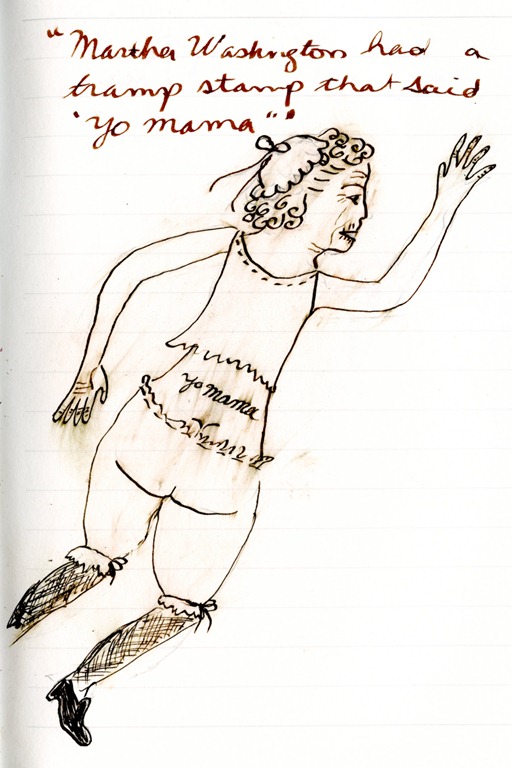 "Martha Washington had a
tramp stamp that said
'yo mama'".
yo mama